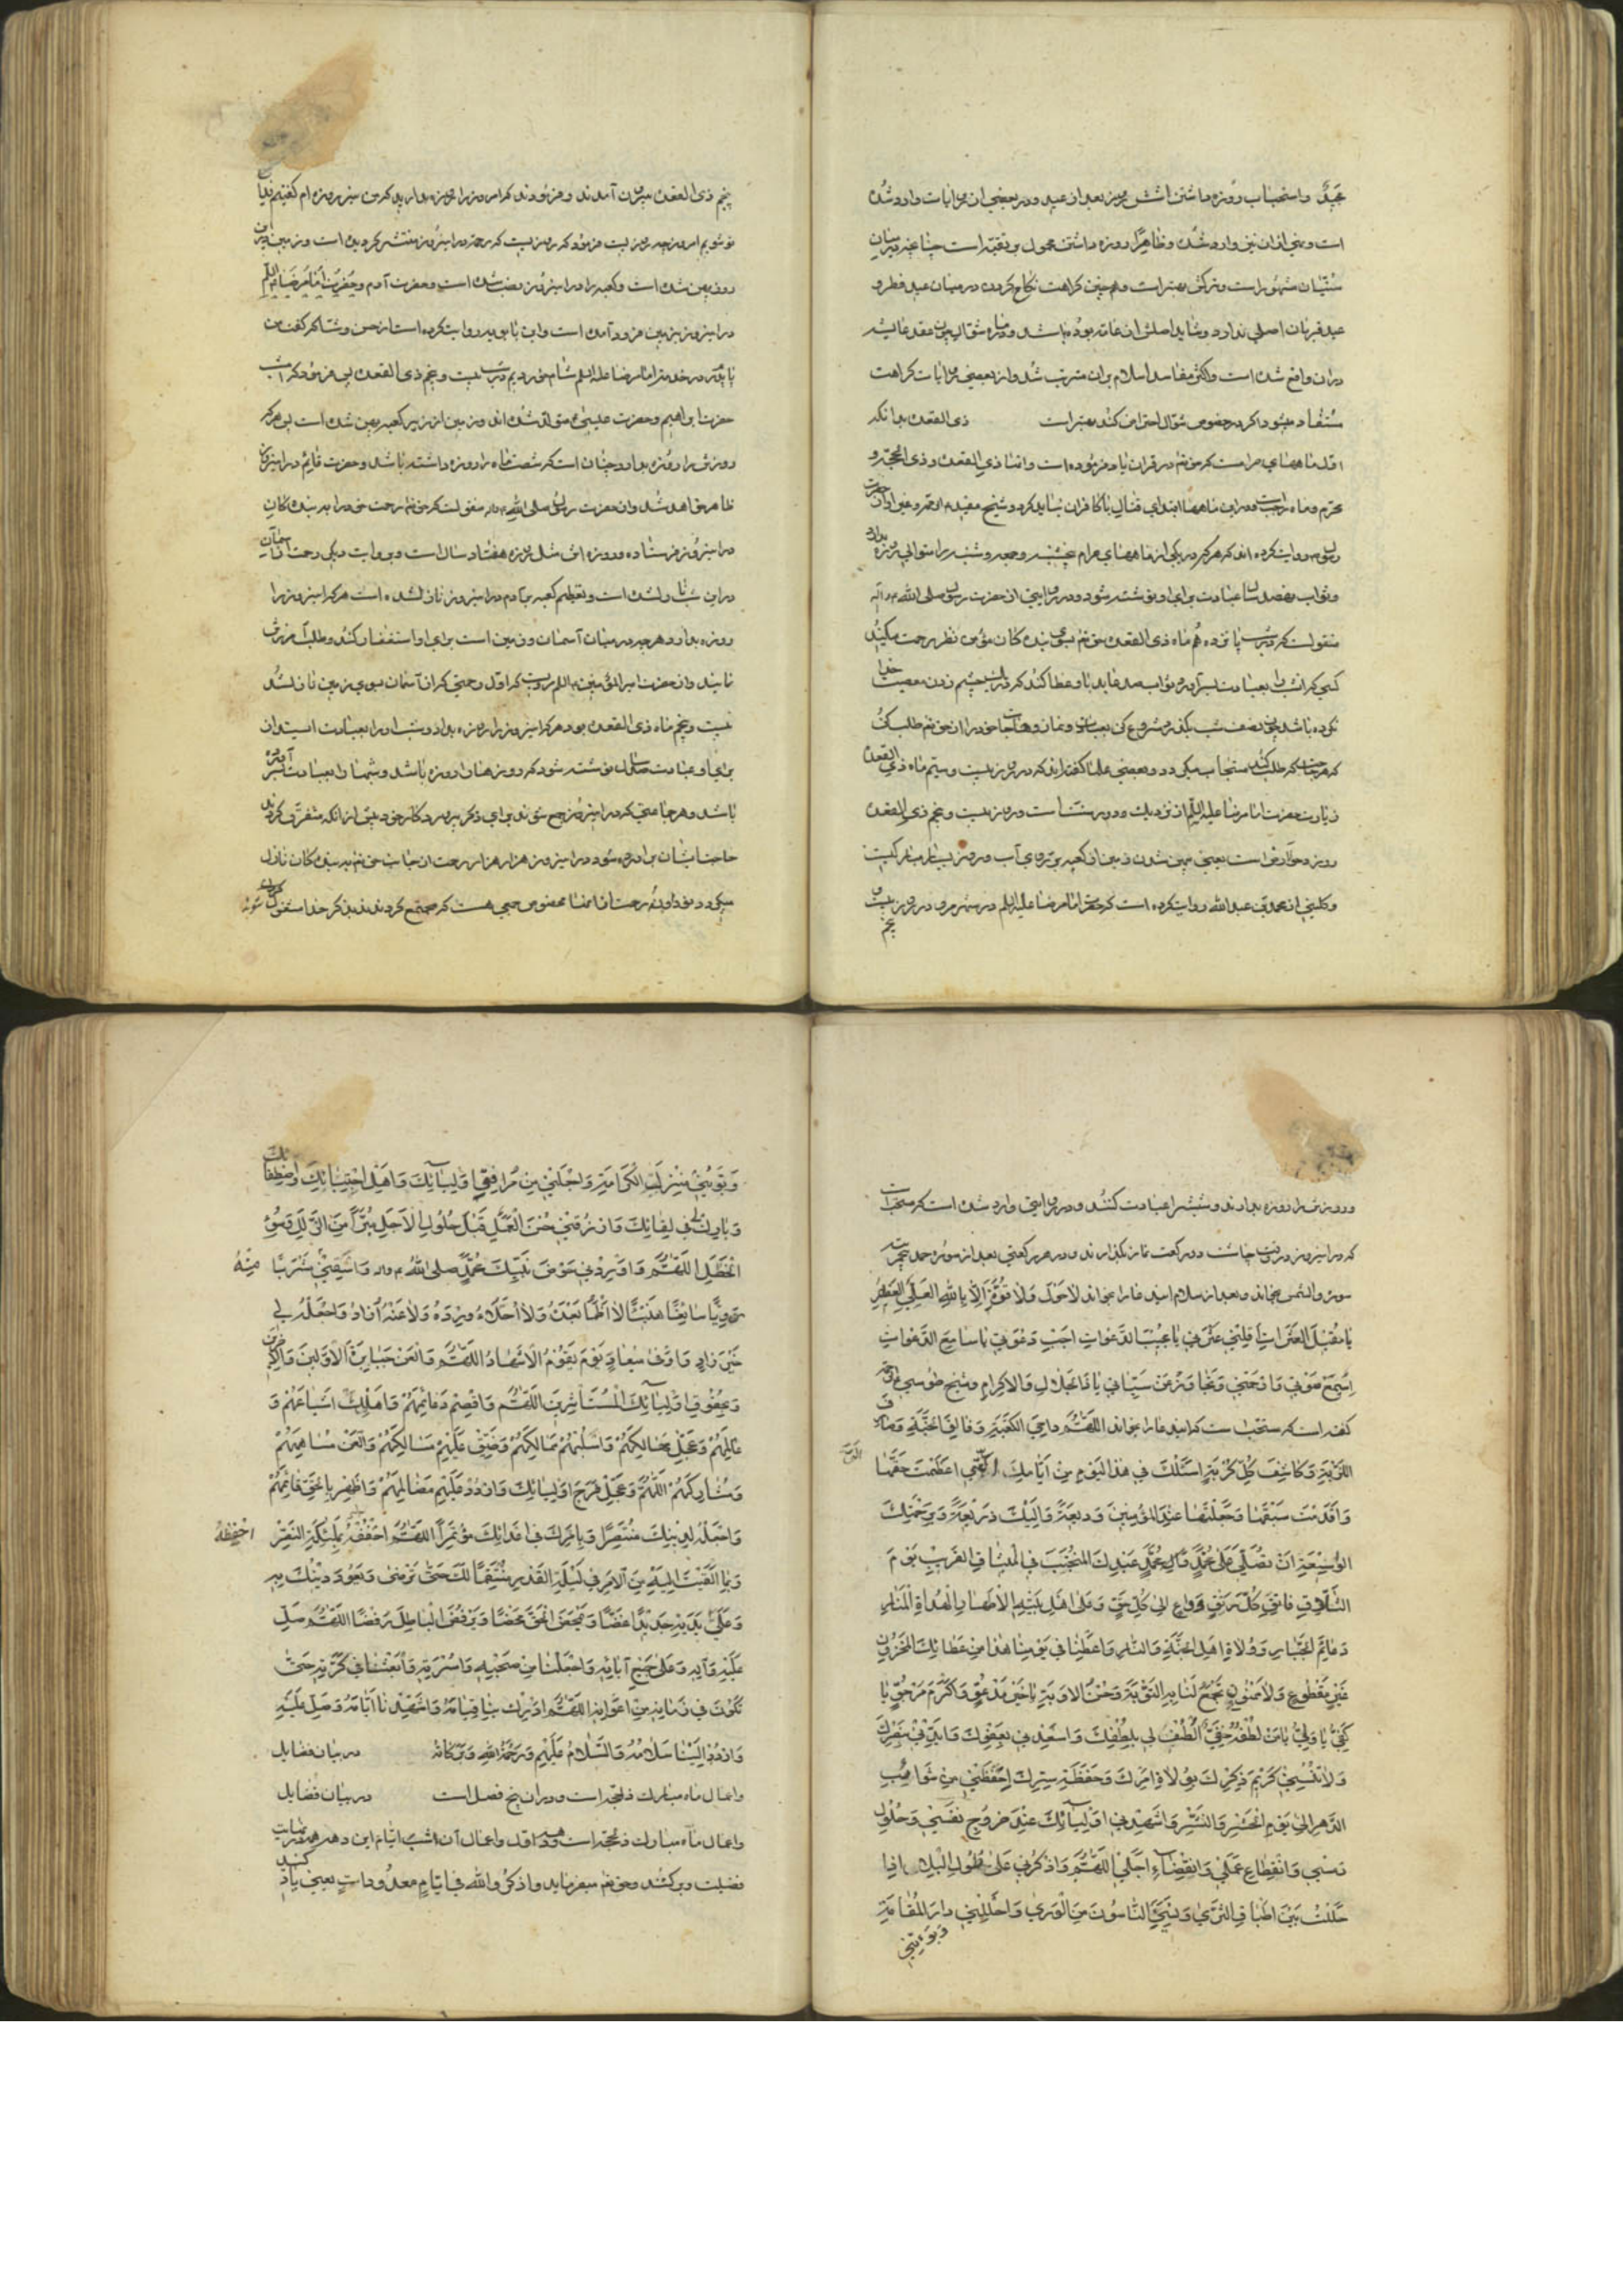 عجبٌ واستحباب روزه داشتن شش روز بعد از عید و در بعضی از روایات وارد شده
است و نهی از آن نیز وارد شده و ظاهرًا روزه داشتن محمول بر تقیه است چنانچه در میان
سنّیان مشهور است و ترکش بهتر است و همچنین کراهت نکاح کردن در میان عید فطر و
عید قربان اصلی ندارد و شاید اصلش آن باشد و در ماه شوّال چون عقد عایشه
در آن واقع شده است و اکثر مفاسد اسلام بر آن مترتب شد و از بعضی روایات کراهت
مستفاد میشود اگر در خصوص شوّال احتراز کنند بهتر است ذی القعده بدانکه
اوّل ماههای حرامست که حق تعالی در قرآن یاد فرموده است و آنها ذی القعده و ذی الحجّه و
محرّم و ماه رجب است و در این ماهها ابتدای قتال با کافران نباید کرد و شیخ مفید ره و غیر او از حضرت
رسول ص روایت کرده اند که هر که در یکی از ماههای حرام پنجشنبه و جمعه و شنبه را متوالی روزه بدارد
ثواب نهصد سال عبادت برای او نوشته شود و در روایتی از حضرت رسول صلی الله ع وآله
منقولست که در شب پانزدهم ماه ذی القعده حق تعالی بسوی بندگان مؤمن نظر رحمت میکند
کسی که آنشب را بعبادت بسر آورد ثواب صد عابد باو عطا کند که در یک چشم زدن معصیت خدا
نکرده باشد پس نصف شب بگذرد شروع کن بعبادت و نماز و طلب حاجات خود از حق تعالی طلب کن
که هر حاجت که طلب کند مستجاب میگردد و بعضی علما گفته اند که در روز بیست و سیّم ماه ذی القعده
زیارت حضرت امام رضا علیه السّلم از نزدیک و دور سنّت است و روز بیست و پنجم ذی القعده
روز دحو الارض است یعنی پهن شدن زمین از کعبه بر روی آب و روز بسیار مبارکیست
و کلینی از محمد بن عبد الله روایت کرده است که حضرت امام رضا علیه السلم در شهر مرو در روز بیست و
پنجم
پنجم ذی القعده بیرون آمدند و فرمودند که امروز را روزه بدارید که من نیز روزه ام گفتیم فدای
تو شویم امروز چه روز است فرمود که روزیست که رحمة در این روز منتشر گردیده است و زمین در این
روز پهن شده است و کعبه را در این روز نصب شده است و حضرت آدم
در این روز بزمین فرود آمده است و ابن بابویه روایت کرده است از حسن وشّا که گفت من
با پدرم در خدمت امام رضا علیه السلم شام خوردیم در شب بیست و پنجم ذی القعده پس فرمود که امشب
حضرت ابراهیم و حضرت عیسی ع متولّد شده اند و زمین از زیر کعبه پهن شده است پس هر که
روزش را روزه بدارد چنان است که شصت ماه را روزه داشته باشد و حضرت قایم در این روز
ظاهر خواهد شد و از حضرت رسول صلی الله ع وآله منقولست که حق تعالی رحمت خود را به بندگان
در این روز فرستاده و روزه اش مثل روزه هفتاد سال است و بروایت دیگر رحمت از آسمان
در این شب نازل شده است و تعظیم کعبه بر آدم در این روز نازل شده است هر که این روز را
روزه بدارد هر چه در میان آسمان و زمین است برای او استغفار کند و طلب آمرزش
نمایند و از حضرت امیر المؤمنین ع السلم مرویست که اوّل رحمتی که از آسمان بسوی زمین نازل شد
بیست و پنجم ماه ذی القعده بود هر که این روز را روزه بدارد و شب او را بعبادت ایستد از
برای او عبادت صد سال نوشته شود که روزها را روزه باشد و شبها را بعبادت بسر آورده
باشد و هر جماعتی که در این روز جمع شوند برای ذکر پروردگار خود پیش از آنکه متفرّق گردند
حاجت ایشان برآورده شود در این روز هزار هزار رحمت از جانب حق تعالی به بندگان نازل
میگردد نود و نه رحمت از آنها مخصوص جمعی هست که مجتمع گردند بذکر خدا مشغول شوند
و روزش را روزه بدارند و شبش را عبادت کنند و در روایتی وارد شده است که مستحب است
که در این روز در وقت چاشت دو رکعت نماز بگذارند و در هر رکعتی بعد از سوره حمد پنج مرتبه
سوره والشمس بخواند و بعد از سلام این دعا را بخواند لاٰ حَوْلَ وَلاٰ قُوَّةَ اِلاّٰ بِاللّٰهِ العَلِّیِ العَظیٖمِ
یٰا مُقیٖلَ العَثَرٰاتِ اَقِلْنیٖ عَثْرَتیٖ یٰا مُجیٖبَ الدَّعَوٰاتِ اَجِبْ دَعْوَتیٖ یٰا سٰامِعَ الدَّعَوٰاتِ
اِسْمَعْ صَوْتیٖ وَارْحَمْنیٖ وَتَجٰاوَزْ عَنْ سَیِّئٰاتیٖ یٰا ذَا الجَلاٰلِ وَالاِکرٰامِ و شیخ طوسی ره
گفته است که مستحب است که این دعا را بخواند اَللّٰهُمَّ دٰاحِیَ الکَعْبَةِ وَفٰالِقَ الحَبَّةِ وَصٰارِفَ
اللَّزْبَةِ وَکٰاشِفَ کُلِّ کُرْبَةٍ اَسْئَلُکَ فیٖ هٰذَا الیَوْمِ مِنْ اَیّٰامِکَ الَّتیٖ اَعْظَمْتَ حَقَّهٰا
وَاَقْدَمْتَ سَبْقَهٰا وَجَعَلْتَهٰا عِنْدَ المُؤْمِنیٖنَ وَدیٖعَةً وَاِلَیْکَ ذَریٖعَةً وَبِرَحْمَتِکَ
الوَسیٖعَةِ اَنْ تُصَلِّیَ عَلیٰ مُحَمَّدٍ وَآلِ مُحَمَّدٍ عَبْدِکَ المُنْتَجَبِ فِی المیٖثٰاقِ القَریٖبِ یَوْمَ
التَّلاٰقِ فٰاتِقِ کُلِّ رَتْقٍ وَدٰاعٍ اِلیٰ کُلِّ حَقٍّ وَعَلیٰ اَهْلِ بَیْتِهِ الاَطْهٰارِ الهُدٰاةِ المَنٰارِ
دَعٰائِمِ الجَبّٰارِ وَوُلاٰةِ اَهْلِ الجَنَّةِ وَالنّٰارِ وَاَعْطِنٰا فیٖ یَوْمِنٰا هٰذٰا مِنْ عَطٰائِکَ المَخْزُونِ
غَیْرَ مَقْطُوعٍ وَلاٰ مَمْنُونٍ تَجْمَعُ لَنٰا بِهِ التَّوْبَةَ وَحُسْنَ الاَوْبَةِ یٰا خَیْرَ مَدْعُوٍّ وَاَکْرَمَ مَرْجُوٍّ یٰا
کَفِیُّ یٰا وَفِیُّ یٰا مَنْ لُطْفُهُ خَفِیٌّ اُلْطُفْ لیٖ بِلُطْفِکَ وَاَسْعِدْنیٖ بِعَفْوِکَ وَاَیِّدْنیٖ بِنَصْرِکَ
وَلاٰ تُنْسِنیٖ کَریٖمَ ذِکْرِکَ بِوُلاٰةِ اَمْرِکَ وَحَفَظَةِ سِرِّکَ اِحْفَظْنیٖ مِنْ شَوٰائِبِ
الدَّهْرِ اِلیٰ یَوْمِ الحَشْرِ وَالنَّشْرِ وَاَشْهِدْنیٖ اَوْلِیٰائَکَ عِنْدَ خُرُوجِ نَفْسیٖ وَحُلُولِ
رَمْسیٖ وَانْقِطٰاعِ عَمَلیٖ وَانْقِضٰاءِ اَجَلیٖ اَللّٰهُمَّ وَاذْکُرْنیٖ عَلیٰ طُولِ البِلیٰ اِذٰا
حَلَلْتُ بَیْنَ اَطْبٰاقِ الثَّریٰ وَنَسِیَنیٖ النّٰاسُونَ مِنَ الوَریٰ وَاَحْلِلْنیٖ دٰارَ المُقٰامَةِ
وَبَوِّئْنیٖ
وَبَوِّئْنیٖ مَنْزِلَ الکَرٰامَةِ وَاجْعَلْنیٖ مِنْ مُرٰافِقیٖ اَوْلِیٰائِکَ وَاَهْلِ اجْتِبٰائِکَ وَاصْطِفٰائِکَ
وَبٰارِکْ لیٖ فیٖ لِقٰائِکَ وَارْزُقْنیٖ حُسْنَ الْعَمَلِ قَبْلَ حُلُولِ الاَجَلِ بَریٖئًا مِنَ الزَّلَلِ وَسُوءِ
الخَطَلِ اَللّٰهُمَّ وَاَوْرِدْنیٖ حَوْضَ نَبِیِّکَ مُحَمَّدٍ صلی اللهُ ع وآله وَاسْقِنیٖ مِنْهُ مَشْرَبًا
رَوِیًّا سٰائِغًا هَنیٖئًا لاٰ اَظْمَأُ بَعْدَهُ وَلاٰ اُحَلَّأُ وِرْدَهُ وَلاٰ عَنْهُ اُذٰادُ وَاجْعَلْهُ لیٖ
خَیْرَ زٰادٍ وَاَوْفیٰ میٖعٰادٍ یَوْمَ یَقُومُ الاَشْهٰادُ اَللّٰهُمَّ وَالْعَنْ جَبٰابِرَةَ الاَوَّلیٖنَ وَالآخِریٖنَ
وَبِحُقُوقِ اَوْلِیٰائِکَ الْمُسْتَأْثِریٖنَ اَللّٰهُمَّ وَاقْصِمْ دَعٰائِمَهُمْ وَاَهْلِکْ اَشْیٰاعَهُمْ وَ
عٰامِلَهُمْ وَعَجِّلْ مَهٰالِکَهُمْ وَاسْلُبْهُمْ مَمٰالِکَهُمْ وَضَیِّقْ عَلَیْهِمْ مَسٰالِکَهُمْ وَالْعَنْ مُسٰاهِمَهُمْ
وَمُشٰارِکَهُمْ اَللّٰهُمَّ وَعَجِّلْ فَرَجَ اَوْلِیٰائِکَ وَارْدُدْ عَلَیْهِمْ مَظٰالِمَهُمْ وَاَظْهِرْ بِالحَقِّ قٰائِمَهُمْ
وَاجْعَلْهُ لِدیٖنِکَ مُنْتَصِرًا وَبِاَمْرِکَ فیٖ اَعْدٰائِکَ مُؤْتَمِرًا اَللّٰهُمَّ احْفُفْهُ بِمَلٰئِکَةِ النَّصْرِ
وَبِمٰا اَلْقَیْتَ اِلَیْهِ مِنَ الاَمْرِ فیٖ لَیْلَةِ القَدْرِ مُنْتَقِمًا لَکَ حَتّٰی تَرْضیٰ وَیَعُودَ دیٖنُکَ بِهِ
وَعَلیٰ یَدَیْهِ جَدیٖدًا غَضًّا وَیَمْحَضَ الْحَقَّ مَحْضًا وَیَرْفُضَ الْبٰاطِلَ رَفْضًا اَللّٰهُمَّ صَلِّ
عَلَیْهِ وَآلِهِ وَعَلیٰ جَمیٖعِ آبٰائِهِ وَاجْعَلْنٰا مِنْ صَحْبِهِ وَاُسْرَتِهِ وَابْعَثْنٰا فیٖ کَرَّتِهِ حَتّٰی
نَکُونَ فیٖ زَمٰانِهِ مِنْ اَعْوٰانِهِ اَللّٰهُمَّ اَدْرِکْ بِنٰا قِیٰامَهُ وَاَشْهِدْنٰا اَیّٰامَهُ وَصَلِّ عَلَیْهِ
وَارْدُدْ اِلَیْنٰا سَلاٰمَهُ وَالسَّلاٰمُ عَلَیْهِمْ وَرَحْمَةُ اللهِ وَبَرَکٰاتُهُ در بیان فضایل
و اعمال ماه مبارک ذیحجّه است و در آن پنج فصل است در بیان فضایل
و اعمال ماه مبارک ذیحجّه است و دهه اوّل و اعمال آن ایّام این دهه در نهایت
فضیلت و برکتند و حق تعالی میفرماید واذکروا الله فیٖ ایّٰامٍ معدُودٰاتٍ یعنی یاد کنید